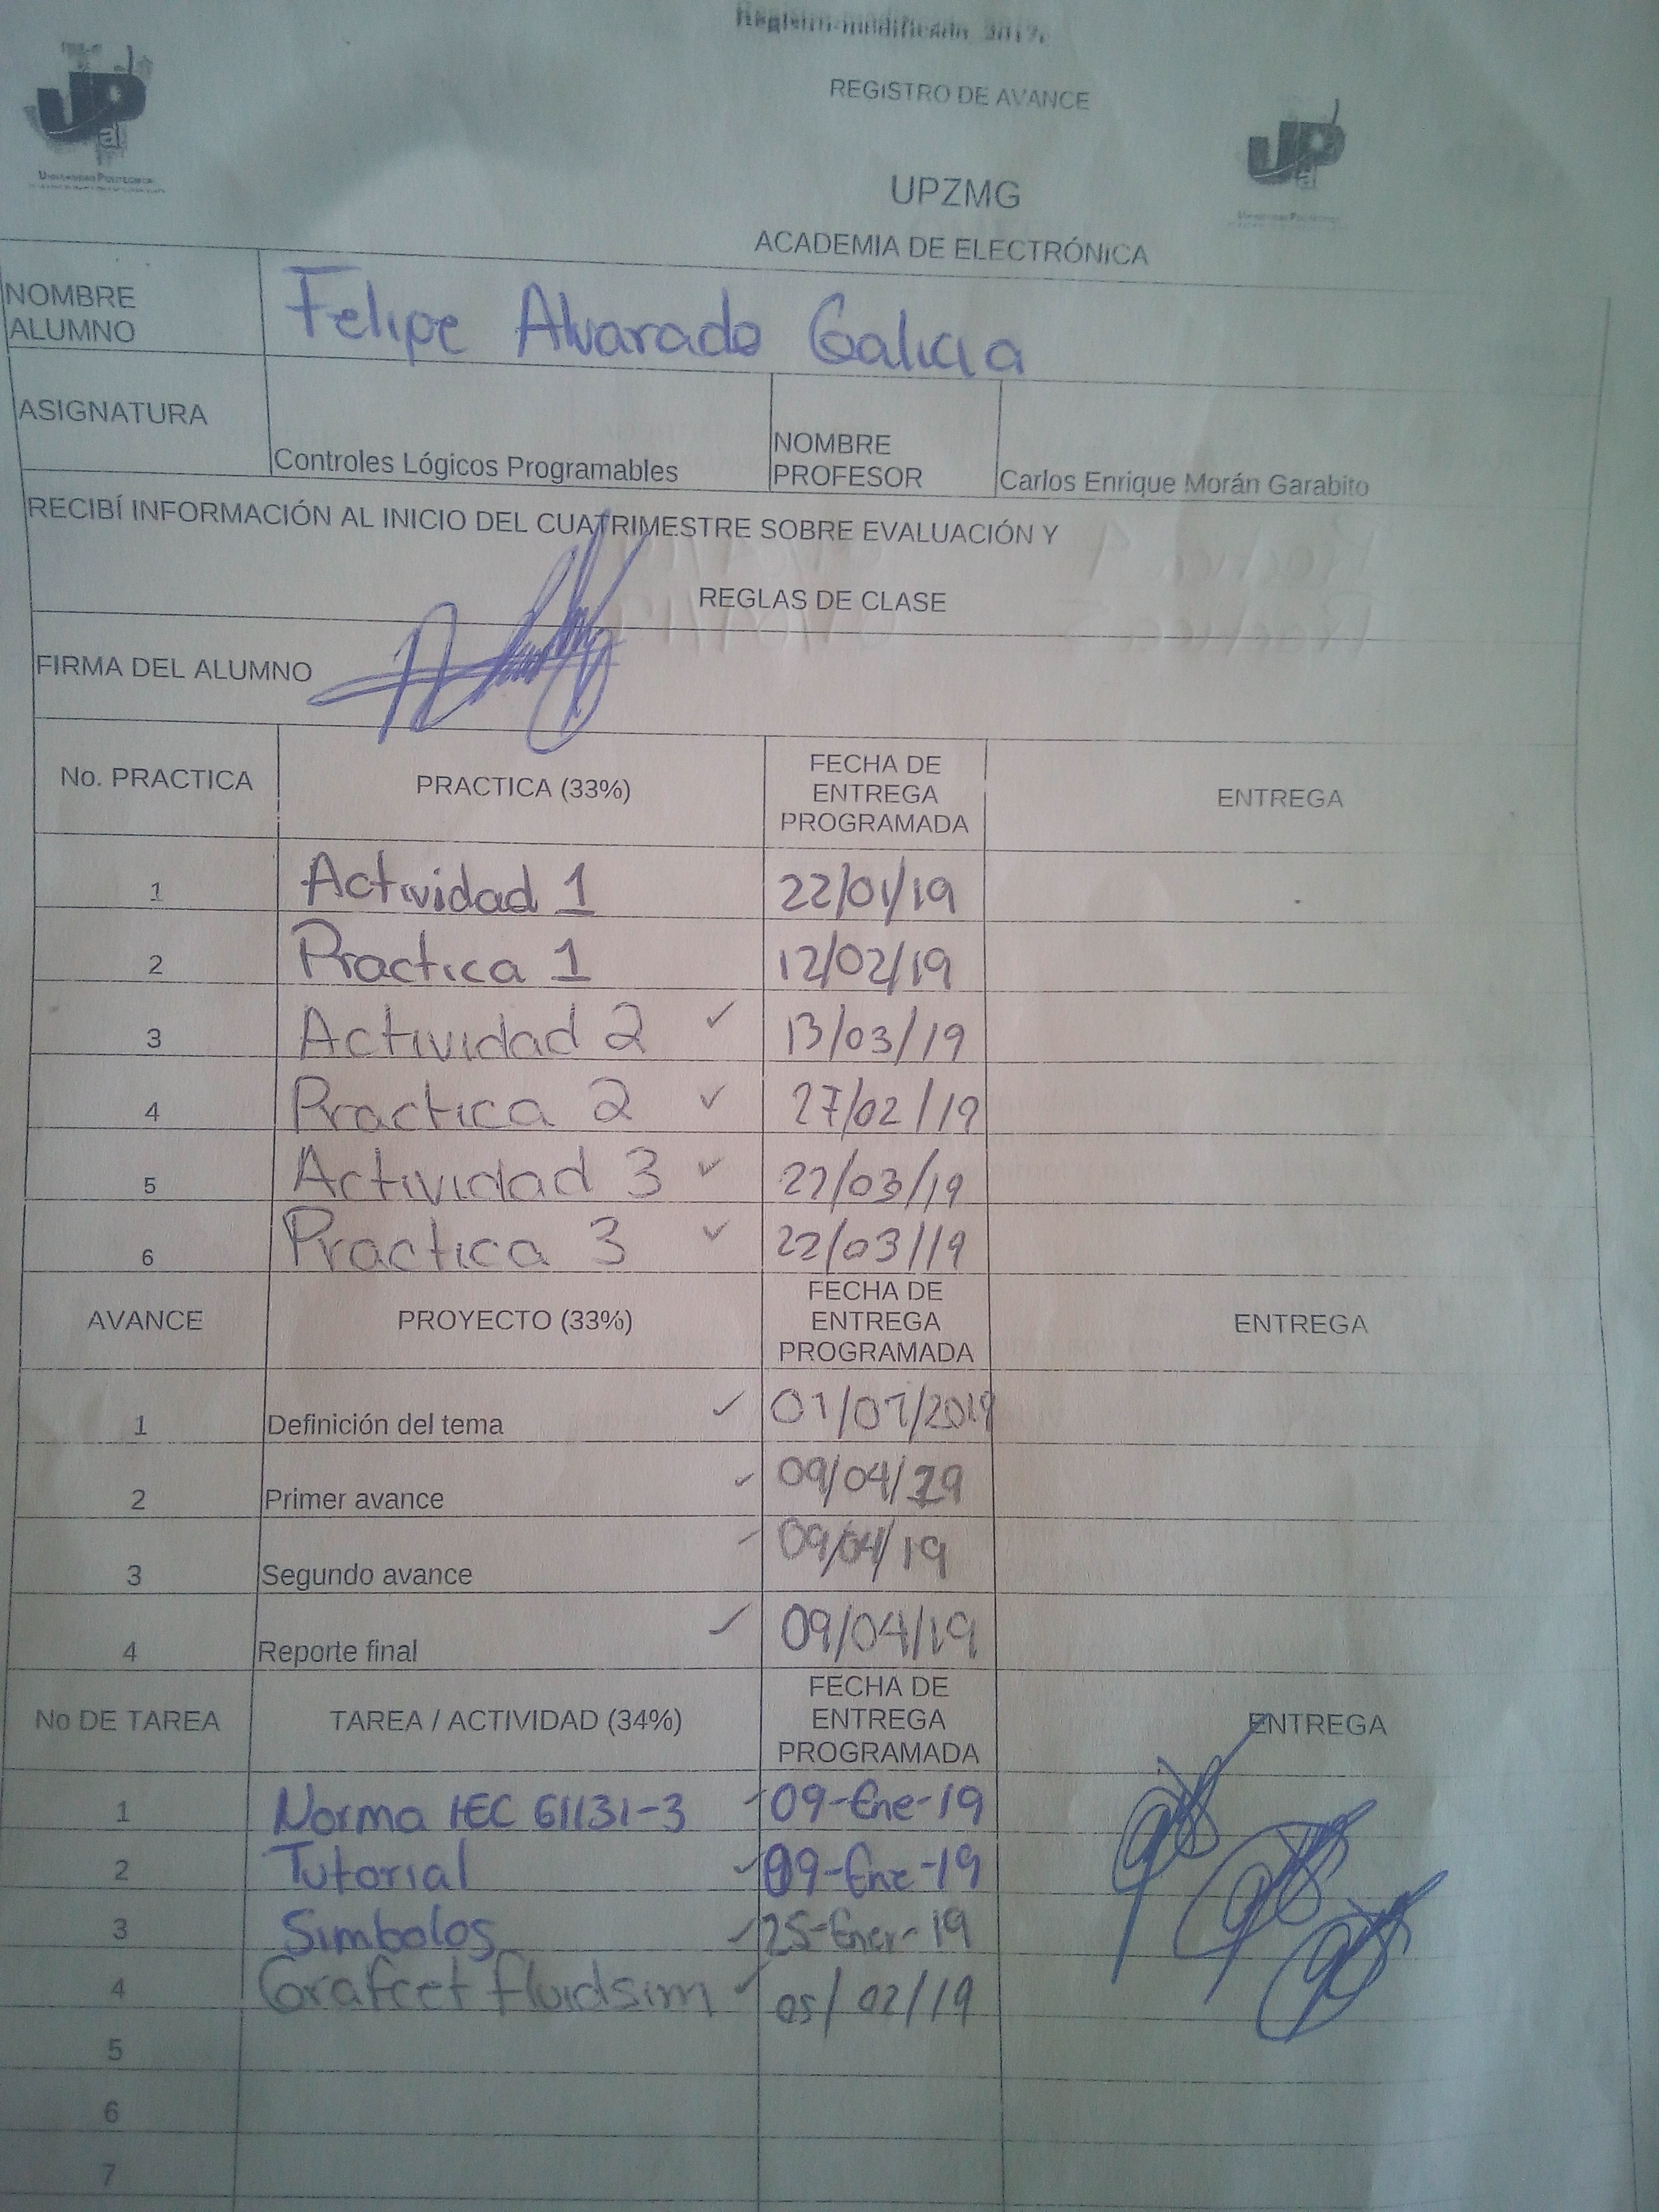 Registro modificado 2017.
REGISTRO DE AVANCE
UPZMG
ACADEMIA DE ELECTRÓNICA
UP
al
UNIVERSIDAD POLITECNICA
UP
al
NOMBRE ALUMNO Felipe Alvarado Galicia
ASIGNATURA Controles Lógicos Programables NOMBRE PROFESOR Carlos Enrique Morán Garabito
RECIBÍ INFORMACIÓN AL INICIO DEL CUATRIMESTRE SOBRE EVALUACIÓN Y
REGLAS DE CLASE
FIRMA DEL ALUMNO
No. PRACTICA PRACTICA (33%) FECHA DE ENTREGA PROGRAMADA ENTREGA
1 Actividad 1 22/01/19
2 Practica 1 12/02/19
3 Actividad 2 ✓ 13/03/19
4 Practica 2 ✓ 27/02/19
5 Actividad 3 ✓ 22/03/19
6 Practica 3 ✓ 22/03/19
AVANCE PROYECTO (33%) FECHA DE ENTREGA PROGRAMADA ENTREGA
1 Definición del tema ✓ 01/01/2019
2 Primer avance ✓ 09/04/19
3 Segundo avance ✓ 09/04/19
4 Reporte final ✓ 09/04/19
No DE TAREA TAREA / ACTIVIDAD (34%) FECHA DE ENTREGA PROGRAMADA ENTREGA
1 Norma IEC 61131-3 ✓ 09-Ene-19
2 Tutorial ✓ 09-Ene-19
3 Simbolos ✓ 25-Ener-19
4 Grafcet fluidsim ✓ 05/02/19
5
6
7